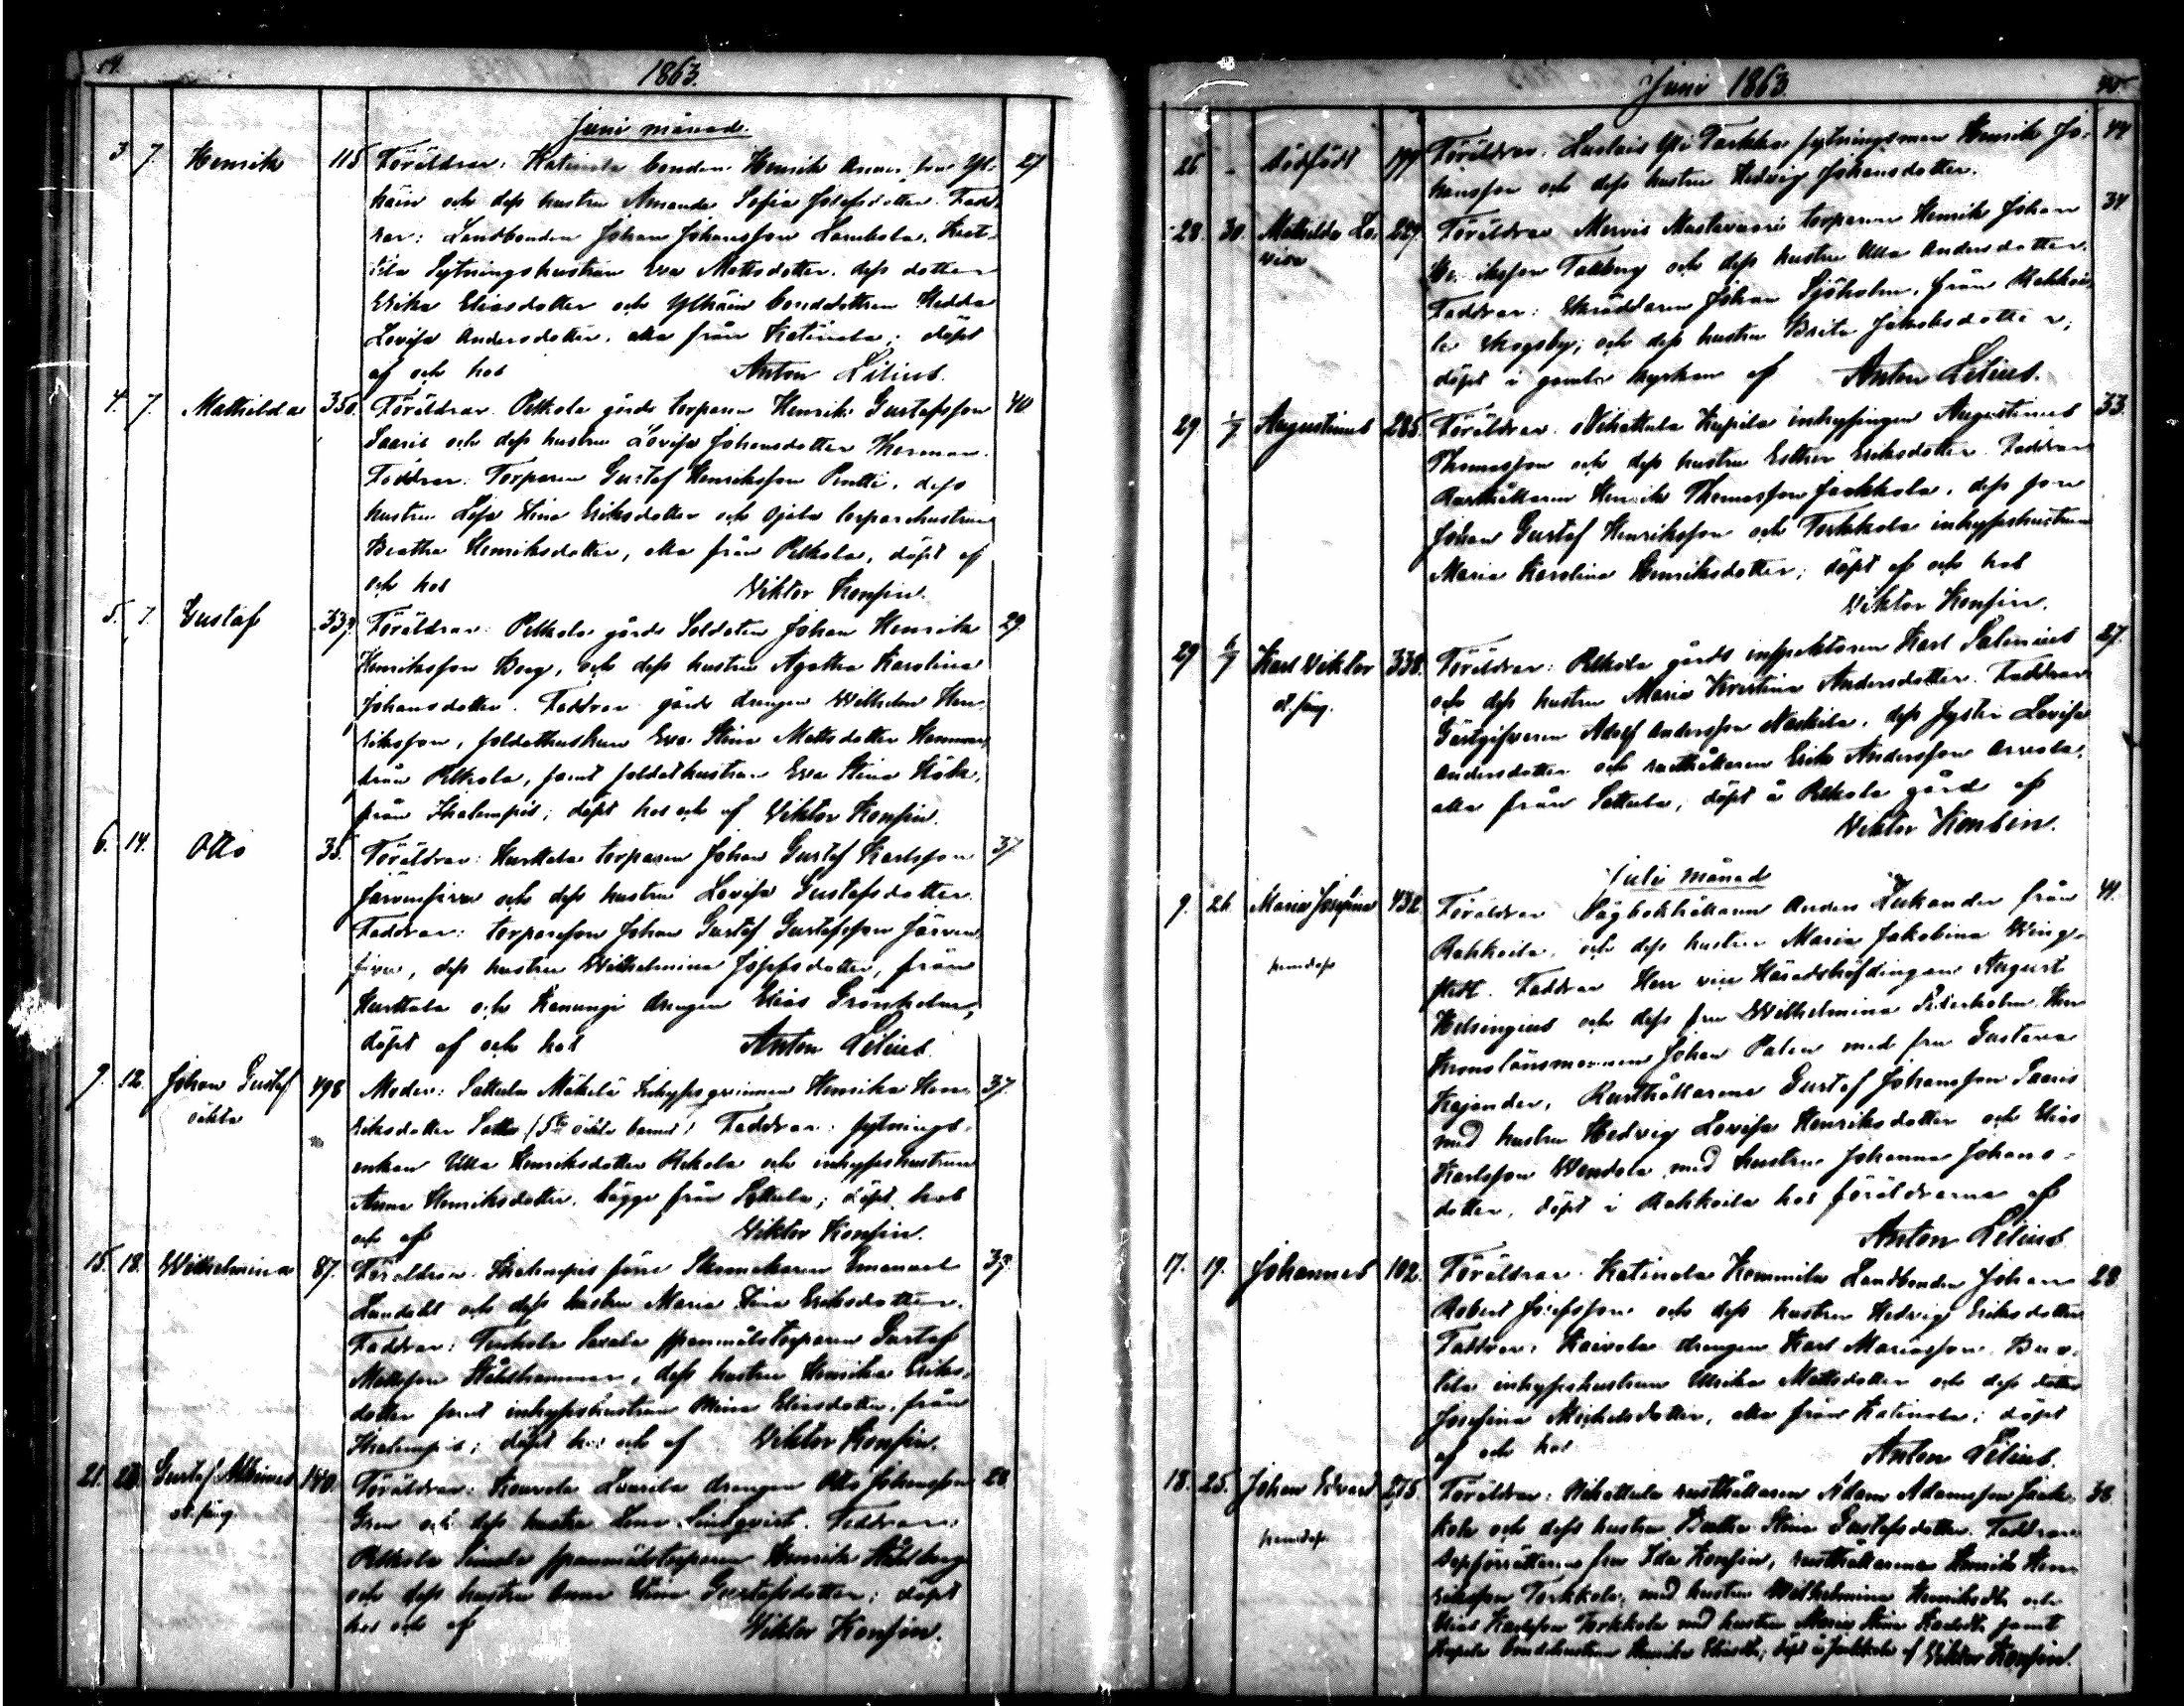 1863.
Juni månad.
3 7. Henrik 115 Föräldrar: Katinala bonden Henrik Anders son Yli- 27
häin och dess hustru Amanda Sofia Josefsdotter. Fadd-
rar: Landbonden Johan Johansson Lambola,
Sytningshustrun Eva Mattsdotter, dess dotter
Erika Eliasdotter och Ylhäin bondedottren Hedda
Lovisa Andersdotter, alla från Katinala; döpt
af och hos Anton Lilius.
4. 7. Mathilda 350. Föräldrar. Pelkola gårds torparen Henrik Gustafsson 40
Saaris och dess hustru Lovisa Johansdotter Herman.
Faddrar. Torparen Gustaf Henriksson Pentti, dess
hustru Lisa Stina Eriksdotter och Ojala torparehustrun
Beatha Henriksdotter, alla från Pelkola, döpt af
och hos Viktor Konsin.
5. 7. Gustaf 339. Föräldrar: Pelkola gårds Soldaten Johan Henrik 29.
Henriksson Borg, och dess hustru Agatha Karolina
Johansdotter. Faddrar gårds drengen Wilhelm Hen-
riksson, soldathustrun Eva Stina Mattsdotter
från Pelkola, samt soldathustrun Eva Stina
från Ihalempis; döpt hos och af Viktor Konsin.
6. 14. Otto 35. Föräldrar: Hurttala torparen Johan Gustaf Karlsson 37
Järvensivu och dess hustru Lovisa Gustafsdotter.
Faddrar: torparesson Johan Gustaf Gustafsson Järven-
sivu, dess hustru Wilhelmina Josefsdotter, från
Hurttala och drengen Elias Grönholm,
döpt af och hos Anton Lilius.
9. 12. Johan Gustaf 498 Moder: Sattula Mäkelä Inhysesqvinnan Henrika Hen- 37.
oäkta riksdotter (5te oäkta barnet) Faddrar: sytnings-
enkan Ulla Henriksdotter och inhyseshustrun
Anna Henriksdotter, bägge från Sattula; döpt hos
och af Viktor Konsin.
15. 18. Wilhelmina 87. Föräldrar. Ihalempis Skomakaren Emanuel 39.
och dess hustru Maria Stina Eriksdotter.
Faddrar: spanmålstorparen Gustaf
Mattsson Stålhammar, dess hustru Henrika Eriks-
dotter samt inhyseshustrun Mina Eliasdotter, från
Ihalempis; döpt hos och af Viktor Konsin.
21. Gustaf Albinus 140. Föräldrar: drengen Otto Johansson 28
Gren och dess hustru Lena Lindqvist. Faddrar:
Pelkola spanmålstorparen Henrik Stålberg
och dess hustru Anna Stina Gustafsdotter; döpt
hos och af Viktor Konsin.
Juni 1863.
26 - dödfödt 199 Föräldrar. Yli Tarkka sytningsman Henrik Jo- 44
hansson och dess hustru Hedvig Johansdotter.
28. 30. Mathilda Lo- 229. Föräldrar Mervis Mustavuori torparen Henrik Johan 34
visa Henriksson Tallberg och dess hustru Ulla Andersdotter.
Faddrar: Skräddaren Johan Sjöholm, från Rahkoi-
la Skogsby, och dess hustru Brita Jakobsdotter;
döpt i gamla kyrkan af Anton Lilius.
29. 1/7 Augustinus 285. Föräldrar. Vihattula Kupila inhysingen Augustinus 33.
Thomasson och dess hustru Esther Eriksdotter. Faddrar
Rusthållaren Henrik Thomasson Jaakkola, dess son
Johan Gustaf Henriksson och Torkkola inhyseshustrun
Maria Karolina Henriksdotter; döpt af och hos
Viktor Konsin.
29 6/7 Karl Viktor 338. Föräldrar: Pelkola gårds inspektoren Karl Salenius 27.
och dess hustru Maria Kristina Andersdotter. Faddrar
Gästgifvaren Adolf Andersson Naskila, dess syster Lovisa
Andersdotter och rusthållaren Erik Andersson Arvola,
alla från Sattula; döpt å Pelkola gård af
Viktor Konsin.
Juli månad
9. 26. Maria Josefina 432 Föräldrar Sågbokhållaren Anders Lukander från 41.
Rahkoila, och dess hustru Maria Jakobina Wing-
stedt. Faddrar Herr vice Häradshöfdingen August
Helsingius och dess fru Wilhelmina Söderholm, Herr
Kronolänsmannen Johan Palin med fru Gustava
Kajander, Rusthållarene Gustaf Johansson Saaris
med hustru Hedvig Lovisa Henriksdotter och Elias
Karlsson Wendola med hustru Johanna Johans-
dotter, döpt i Rahkoila hos föräldrarna af
Anton Lilius
17. 19. Johannes 102. Föräldrar. Katinala Kommila Landbonden Johan 28
Robert Josefsson och dess hustru Hedvig Eriksdotter
Faddrar: Kaivola drengen Karl Mariasson,
inhyseshustrun Ulrika Mattsdotter och dess dotter
Josefina Michelsdotter, alla från Katinala; döpt
af och hos Anton Lilius.
18. 25. Johan Edvard 275. Föräldrar: Vihattula rusthållaren Adam Adamsson Jaak- 38
kola och dess hustru Beatha Stina Gustafsdotter. Faddrar
Dopförrättarens fru Ida Konsin, rusthållarena Henrik Hen-
riksson Torkkola, med hustru Wilhelmina Henriksdr. och
Elias Karlsson Torkkola med hustru Maria Stina samt
Kupila bondehustrun Henrika Eliasdr; döpt i Jaakkola af Viktor Konsin.